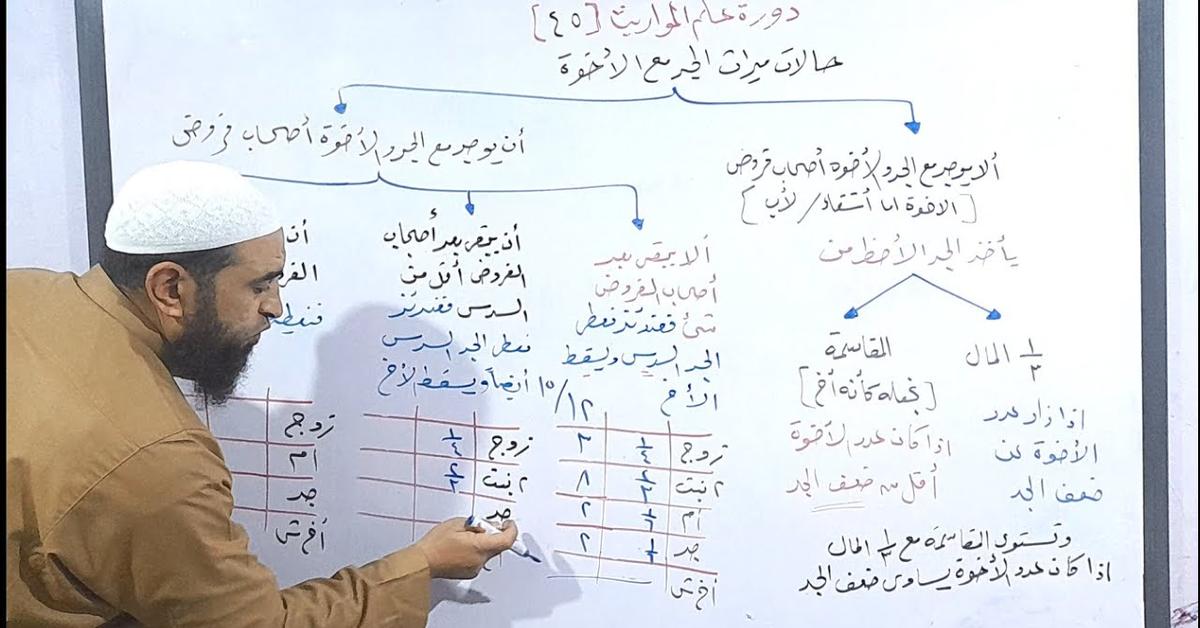 دورة علم المواريث [٤٥]
حالات ميراث الجد مع الأخوة
ألا يوجد مع الجد والأخوة أصحاب فروض
[الاخوة اما أشقاء / لأب]
يأخذ الجد الأحظ من
١/٣ المال
اذا زاد عدد
الأخوة عن
ضعف الجد
المقاسمة
[نجعله كأنه أخ]
اذا كان عدد الأخوة
أقل من ضعف الجد
وتستوي المقاسمة مع ١/٣ المال
اذا كان عدد الأخوة يساوي ضعف الجد
أن يوجد مع الجد والأخوة أصحاب فروض
ألا يتبقى بعد
أصحاب الفروض
شئ فعندئذ نعطى
الجد السدس ويسقط
الأخ
١٢/١٥
زوج ١/٤ ٣
٢ بنت ٢/٣ ٨
أم ١/٦ ٢
جد ١/٦ ٢
أخ ش
أن يتبقى بعد أصحاب
الفروض أقل من
السدس فعندئذ
نعطى الجد السدس
أيضاً ويسقط الأخ
زوج ١/٤
٢ بنت ٢/٣
جد
أن
الفر
فنعط
زوج
أم
جد
أخ ش